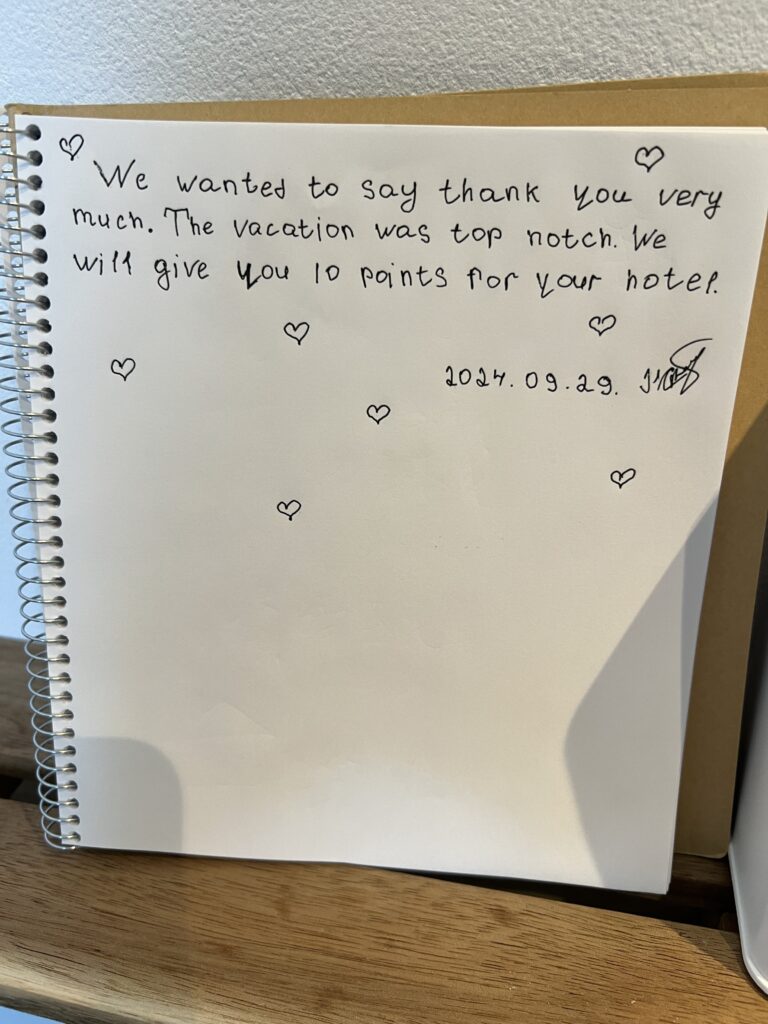 We wanted to say thank you very
much. The vacation was top notch. We
will give you 10 points for your hotel.
2024.09.29.